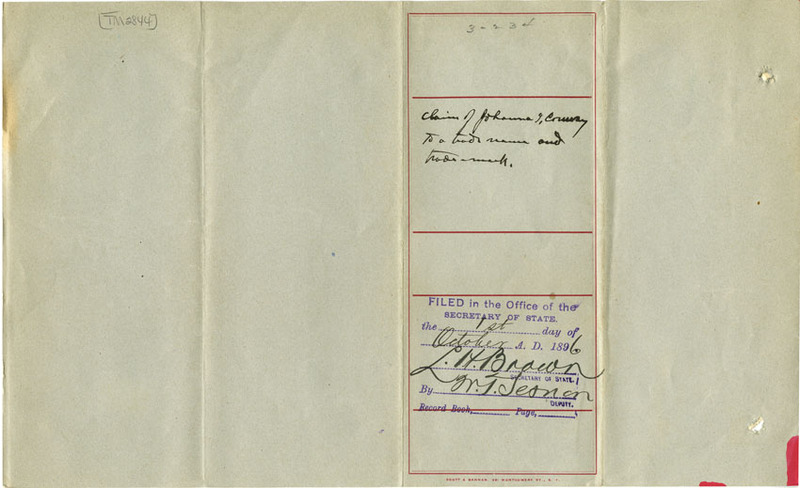 TM2844
3-234
Claim of Johanna I, Conway
to a trade name and
trade-mark.
FILED in the Office of the
SECRETARY OF STATE.
the 1st day of
October A. D. 1896
L. H. Brown
SECRETARY OF STATE.
By W. T. Sesnon
DEPUTY.
Record Book, Page,